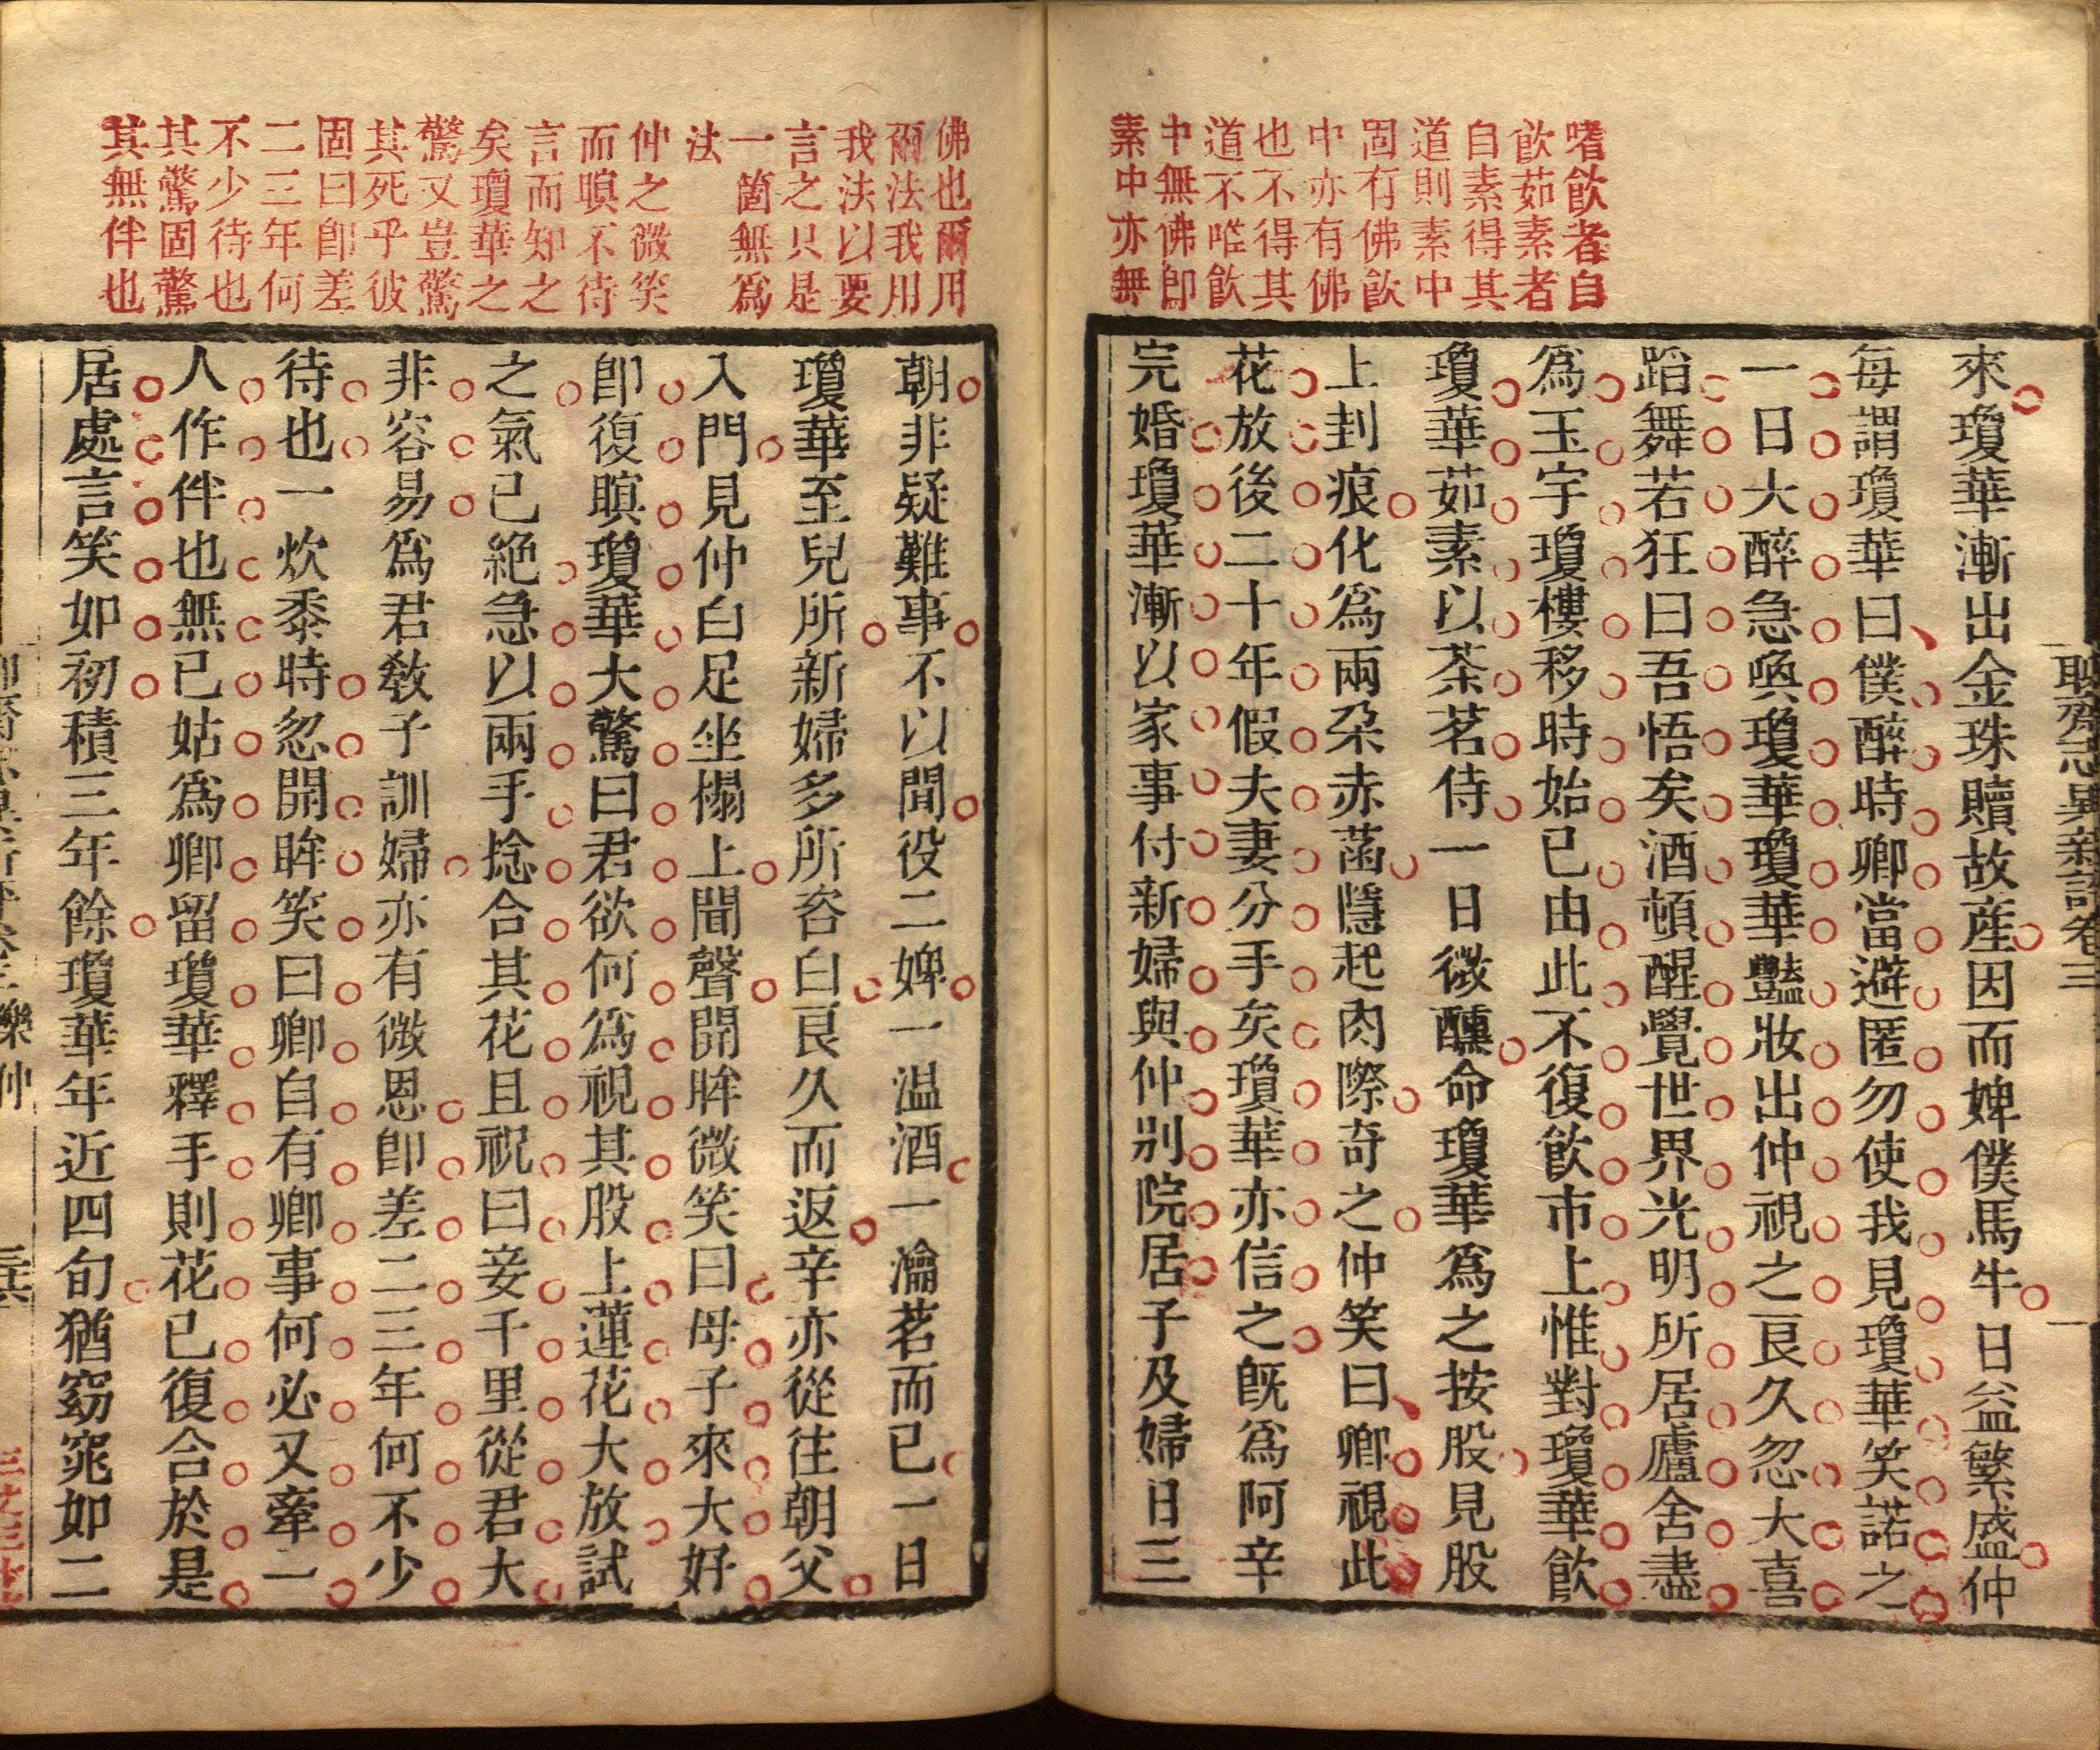 聊齋志異新評卷三
嗜飲者自
飲茹素者
自素得其
道則素中
固有佛飲
中亦有佛
也不得其
道不唯飲
中無佛卽
素中亦無
來瓊華漸出金珠贖故產因而婢僕馬牛日益繁盛仲
每謂瓊華曰僕醉時卿當避匿勿使我見瓊華笑諾之
一日大醉急喚瓊華瓊華豔妝出仲視之良久忽大喜
蹈舞若狂曰吾悟矣酒頓醒覺世界光明所居廬舍盡
爲玉宇瓊樓移時始已由此不復飲市上惟對瓊華飲
瓊華茹素以茶茗侍一日微醺命瓊華爲之按股見股
上刲痕化爲兩朶赤菡隱起肉際奇之仲笑曰卿視此
花放後二十年假夫妻分手矣瓊華亦信之旣爲阿辛
完婚瓊華漸以家事付新婦與仲別院居子及婦日三
佛也爾用
爾法我用
我法以要
言之只是
一箇無爲
法
仲之微笑
而瞑不待
言而知之
矣瓊華之
驚又豈驚
其死乎彼
固曰卽差
二三年何
不少待也
其驚固驚
其無伴也
朝非疑難事不以聞役二婢一温酒一瀹茗而已一日
瓊華至兒所新婦多所咨白良久而返辛亦從往朝父
入門見仲白足坐榻上聞聲開眸微笑曰母子來大好
卽復瞑瓊華大驚曰君欲何爲視其股上蓮花大放試
之氣已絶急以兩手捻合其花且祝曰妾千里從君大
非容易爲君敎子訓婦亦有微恩卽差二三年何不少
待也一炊黍時忽開眸笑曰卿自有卿事何必又牽一
人作伴也無已姑爲卿留瓊華釋手則花已復合於是
居處言笑如初積三年餘瓊華年近四旬猶窈窕如二
樂仲